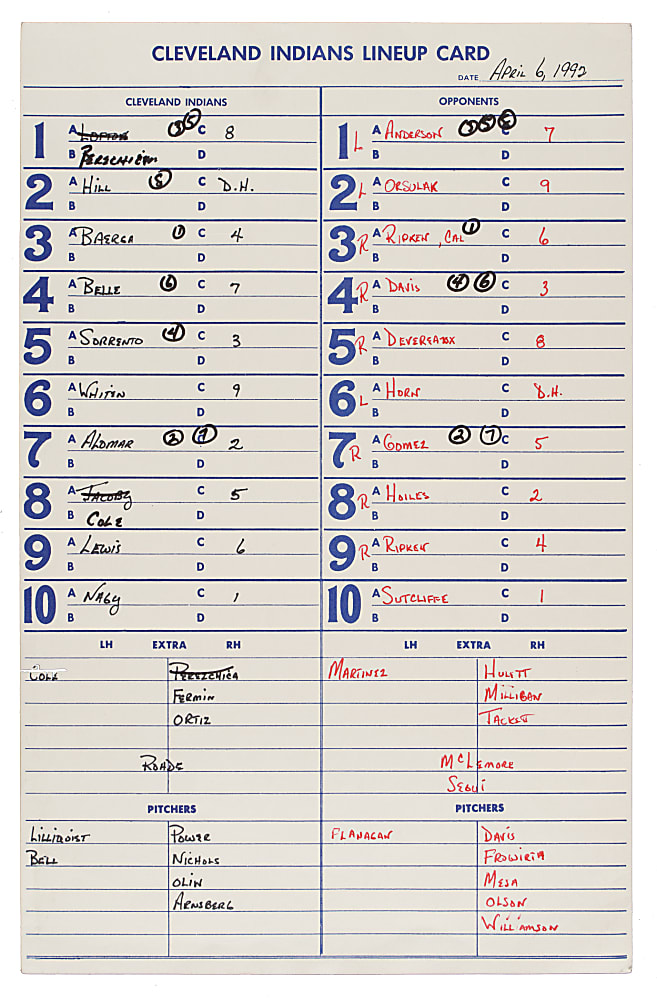 CLEVELAND INDIANS LINEUP CARD
DATE APRIL 6, 1992
CLEVELAND INDIANS
1 A LOFTON 3 5 C 8
B PEREZCHICA D
2 A HILL 5 C D.H.
B D
3 A BAERGA 1 C 4
B D
4 A BELLE 6 C 7
B D
5 A SORRENTO 4 C 3
B D
6 A WHITEN C 9
B D
7 A ALOMAR 2 7 C 2
B D
8 A JACOBY C 5
B COLE D
9 A LEWIS C 6
B D
10 A NAGY C 1
B D
LH EXTRA RH
COLE PEREZCHICA
FERMIN
ORTIZ
ROHDE
PITCHERS
LILLIQUIST POWER
BELL NICHOLS
OLIN
ARNSBERG
OPPONENTS
1 L A ANDERSON 3 5 C 7
B D
2 L A ORSULAK C 9
B D
3 R A RIPKEN, CAL 1 C 6
B D
4 R A DAVIS 4 6 C 3
B D
5 R A DEVEREAUX C 8
B D
6 L A HORN C D.H.
B D
7 R A GOMEZ 2 7 C 5
B D
8 R A HOILES C 2
B D
9 R A RIPKEN C 4
B D
10 A SUTCLIFFE C 1
B D
LH EXTRA RH
MARTINEZ HULETT
MILLIGAN
TACKETT
McLEMORE
SEGUI
PITCHERS
FLANAGAN DAVIS
FROWIRTH
MESA
OLSON
WILLIAMSON